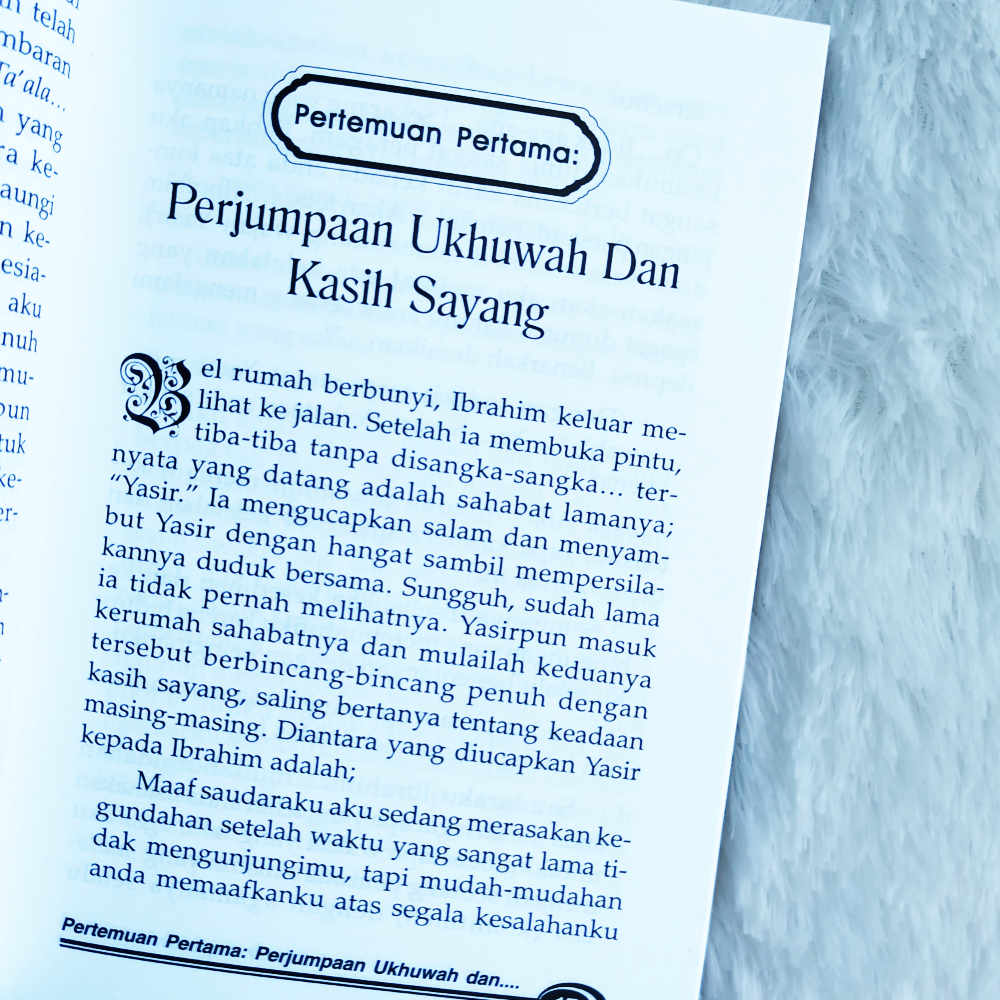 telah
mbaran
Ta'ala...
yang
ra ke-
aungi
n ke-
esia-
aku
nuh
mu-
pun
tuk
ke-
er-
Pertemuan Pertama:
Perjumpaan Ukhuwah Dan
Kasih Sayang
Bel rumah berbunyi, Ibrahim keluar me-
lihat ke jalan. Setelah ia membuka pintu,
tiba-tiba tanpa disangka-sangka... ter-
nyata yang datang adalah sahabat lamanya;
“Yasir.” Ia mengucapkan salam dan menyam-
but Yasir dengan hangat sambil mempersila-
kannya duduk bersama. Sungguh, sudah lama
ia tidak pernah melihatnya. Yasirpun masuk
kerumah sahabatnya dan mulailah keduanya
tersebut berbincang-bincang penuh dengan
kasih sayang, saling bertanya tentang keadaan
masing-masing. Diantara yang diucapkan Yasir
kepada Ibrahim adalah;
Maaf saudaraku aku sedang merasakan ke-
gundahan setelah waktu yang sangat lama ti-
dak mengunjungimu, tapi mudah-mudahan
anda memaafkanku atas segala kesalahanku
Pertemuan Pertama: Perjumpaan Ukhuwah dan....